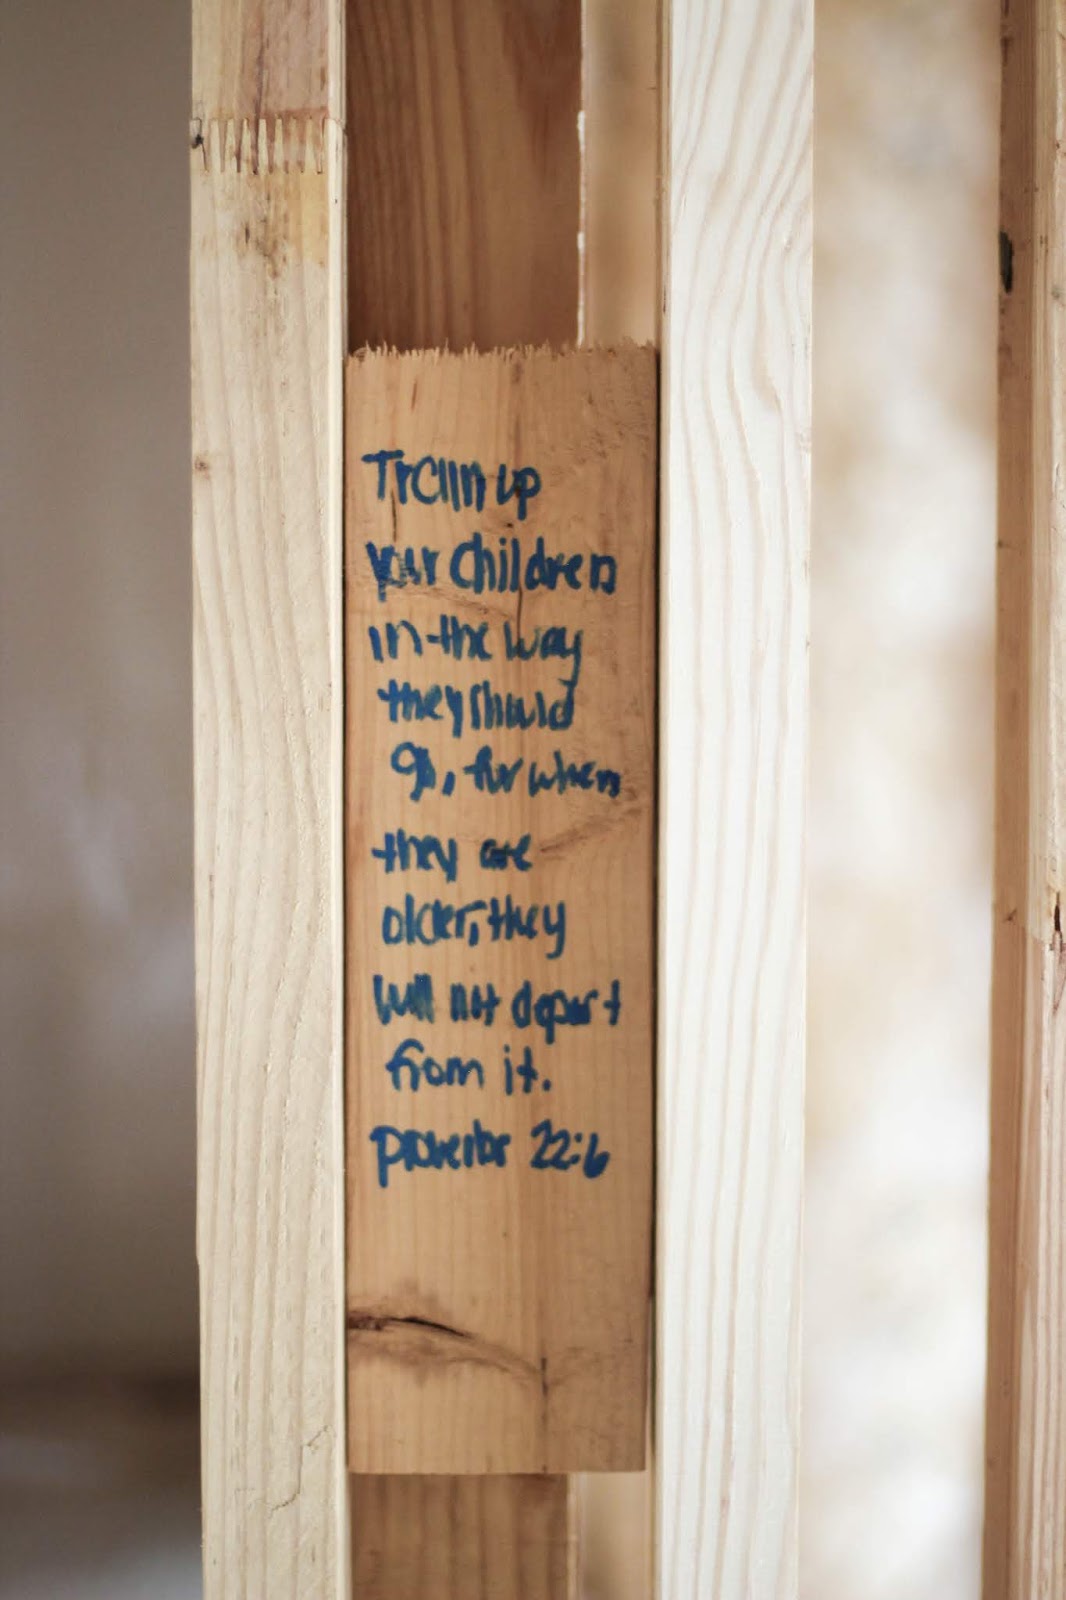 Train up
your children
in the way
they should
go, for when
they are
older, they
will not depart
from it.
Proverbs 22:6